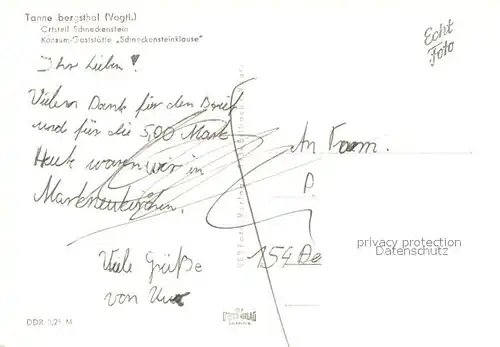 Tanne bergsthal (Vogtl.)
Ortsteil Schneckenstein
Konsum-Gaststätte „Schneckensteinklause"
Echt
Foto
Ihr Lieben!
Vielen Dank für den Brief
und für die 5,00 Mark
Heute waren wir in
Markneukirchen.
Viele Grüße
von
An Fam.
P.
154
privacy protection
Datenschutz
DDR 0,25 M